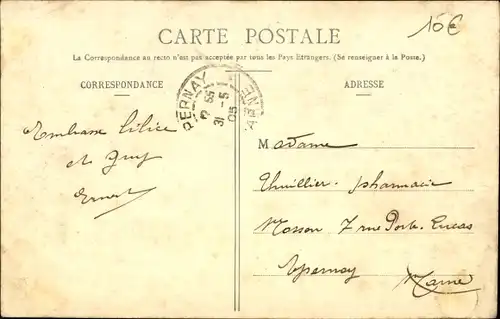 10€
CARTE POSTALE
La Correspondance au recto n'est pas acceptée par tous les Pays Etrangers. (Se renseigner à la Poste.)
CORRESPONDANCE
ADRESSE
EPERNAY
31 -5
05
MARNE
Embrasse
et Guy
Ernest
Madame
Thuillier pharmacie
Mosson 7 rue Porte Lucas
Epernay
Marne